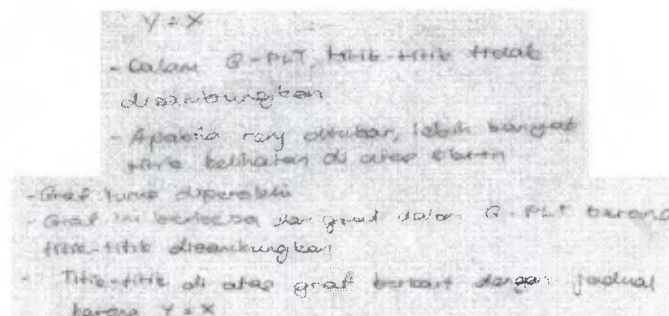 Y = X
- Dalam G-PLT, titik-titik tidak
disambungkan
- Apabila rang ditukar, lebih banyak
titik kelihatan di atas skrin
- Graf lurus diperolehi
- Graf ini berbeza dgn graf dalam G-PLT kerana
titik-titik disambungkan
- Titik-titik di atas graf berkait dengan jadual
kerana Y = X